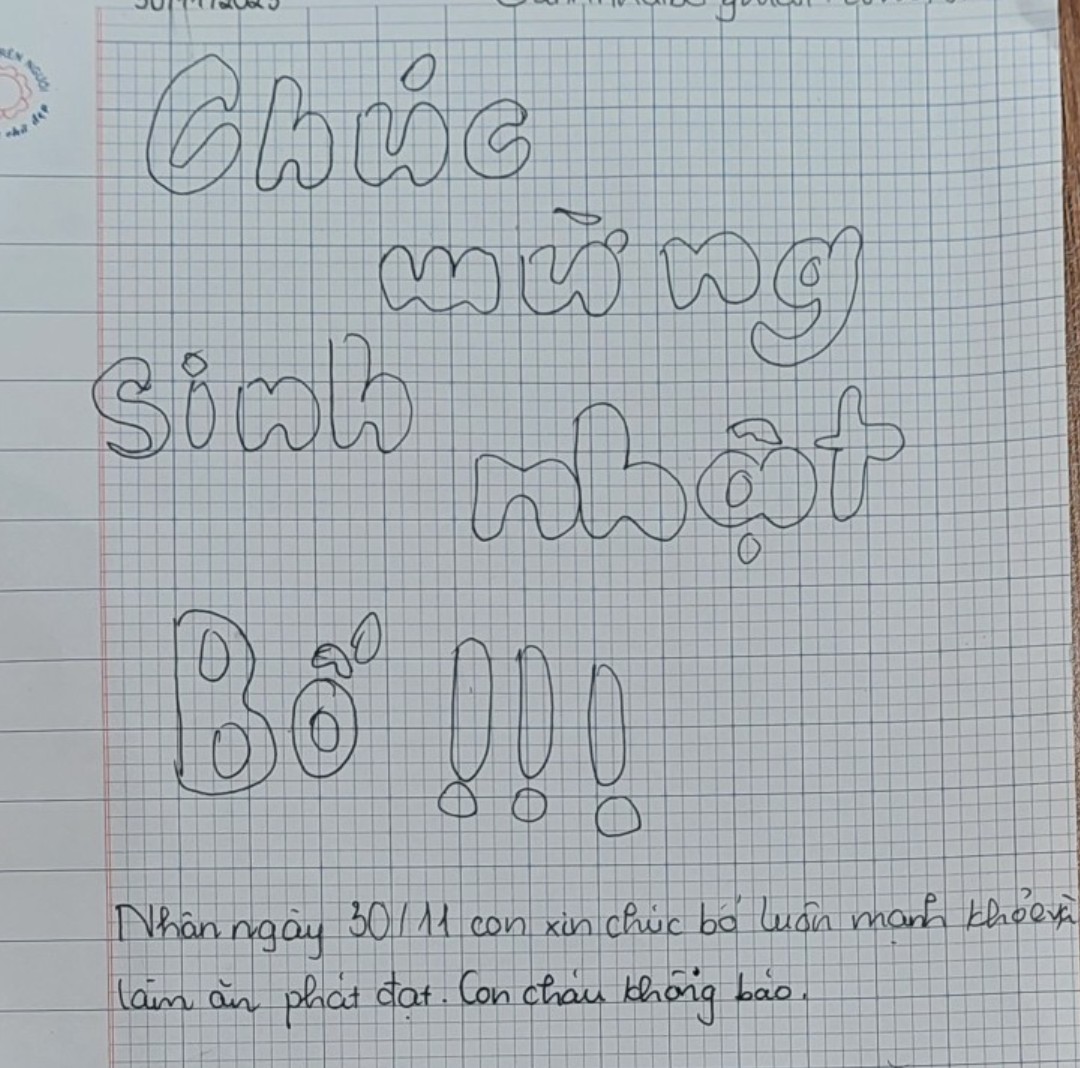 30/11/2023
Chúc
mừng
sinh
nhật
Bố !!!
Nhân ngày 30/11 con xin chúc bố luôn mạnh khỏe và
làm ăn phát đạt. Con cháu không báo.